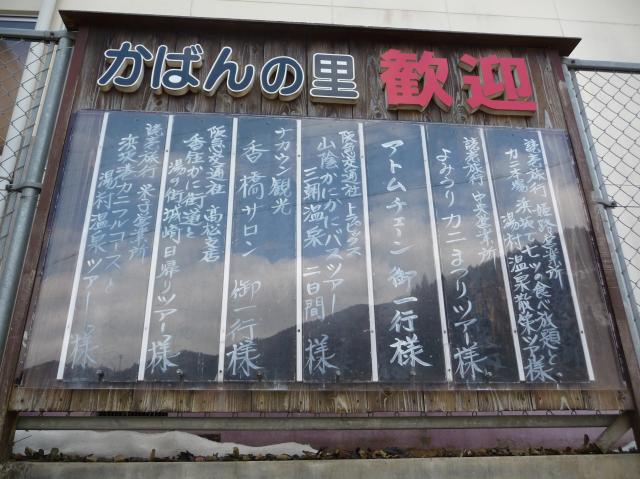 かばんの里 歓迎
読売旅行 姫路営業所
カニ市場 浜坂七ツの食べ放題と
湯村温泉散策ツアー様
読売旅行
よみうり カニまつりツアー様
アトムチェーン 御一行様
阪急交通社 トラピックス
山陰かにかにバスツアー
三朝温泉 二日間 様
ナカウン観光
香橋サロン 御一行様
阪急交通社 高松支店
香住かに街道と
湯の街城崎日帰りツアー様
読売旅行 米子営業所
浜坂港カニフルコースと
湯村温泉ツアー様